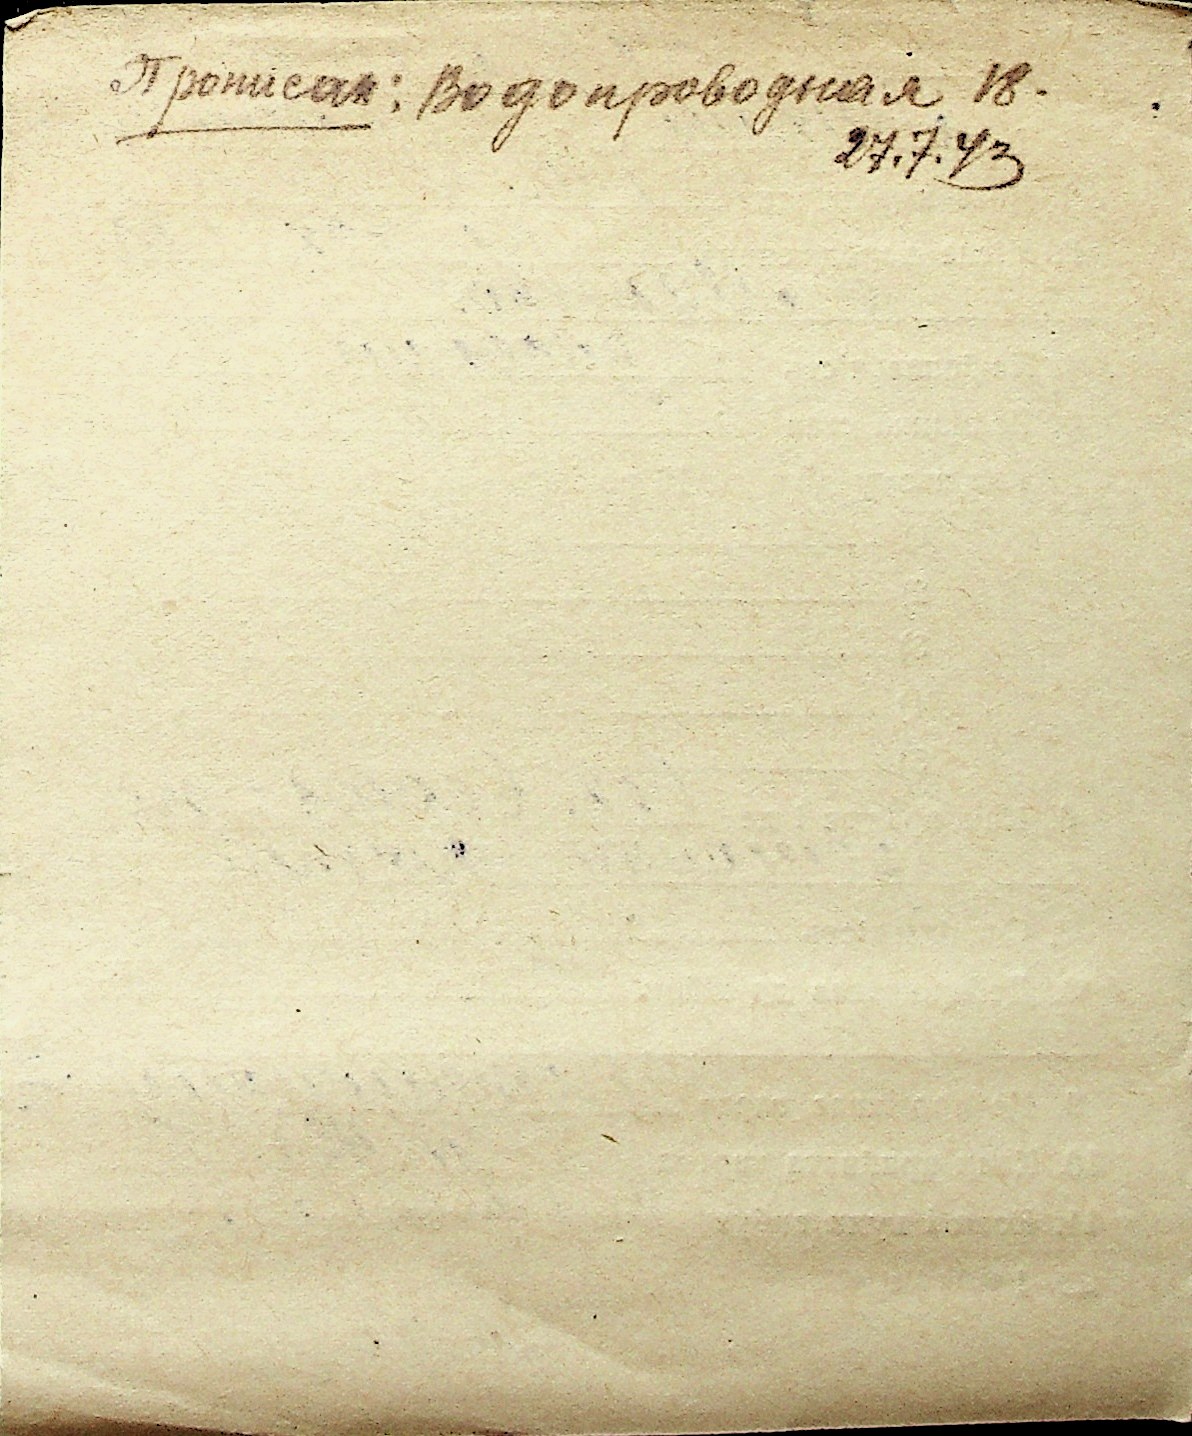 Прописан: Водопроводная 18.
27.7.43